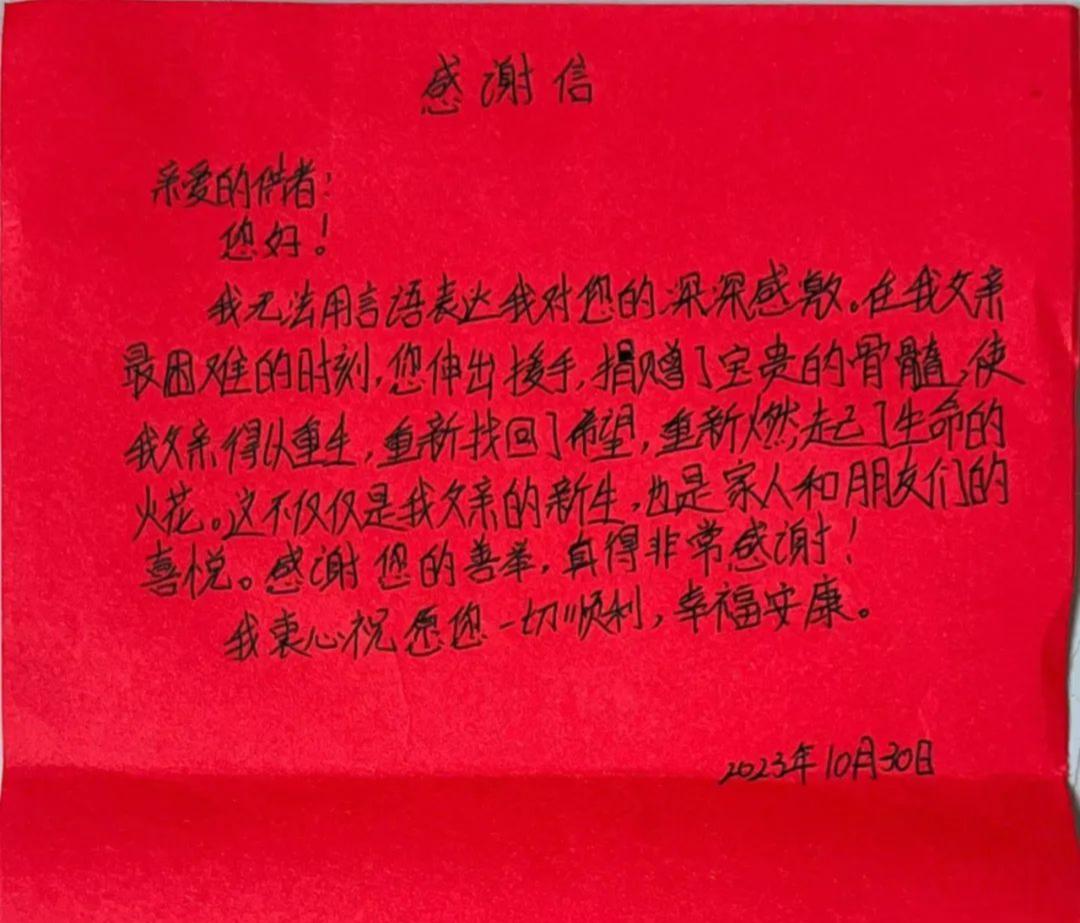 感谢信
亲爱的供者：
您好！
我无法用言语表达我对您的深深感激。在我父亲
最困难的时刻，您伸出援手，捐赠了宝贵的骨髓，使
我父亲得以重生，重新找回了希望，重新燃起了生命的
火花。这不仅仅是我父亲的新生，也是家人和朋友们的
喜悦。感谢您的善举，真得非常感谢！
我衷心祝愿您一切顺利，幸福安康。
2023年10月30日